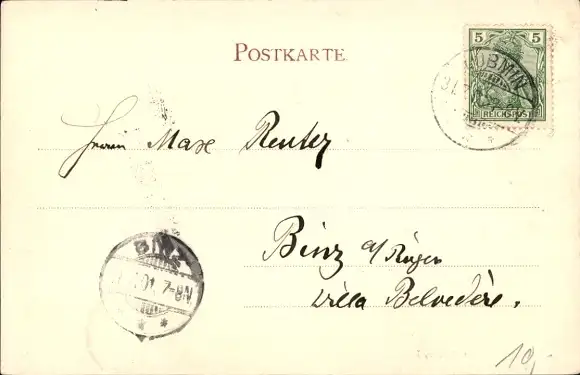 POSTKARTE
5 5
REICHSPOST
LUBMIN
31.
Herrn Max Reuter
Binz a/Rügen
Villa Belvedère.
BINZ
01. 7-8N
10,-